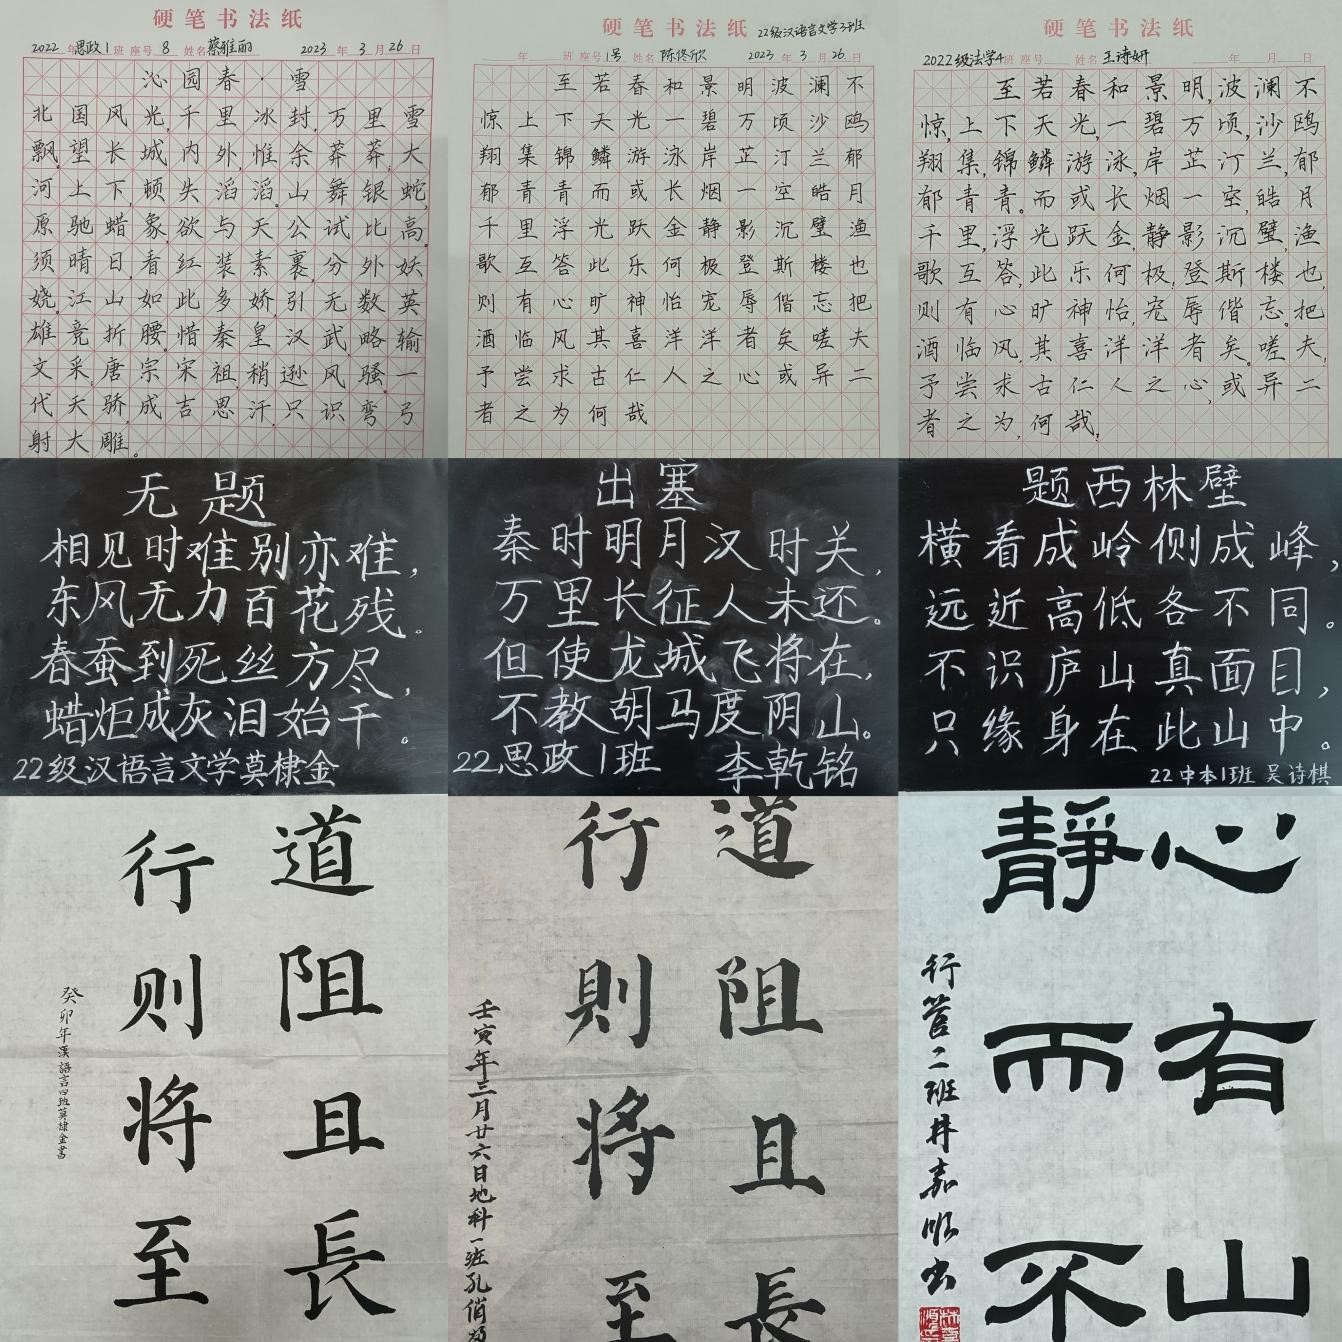 硬笔书法纸
2022年思政1班 座号8 姓名蔡雅丽 2023年3月26日
沁园春·雪
北国风光,千里冰封,万里雪
飘。望长城内外,惟余莽莽,大
河上下,顿失滔滔。山舞银蛇,
原驰蜡象,欲与天公试比高。
须晴日,看红装素裹,分外妖
娆。江山如此多娇,引无数英
雄竞折腰。惜秦皇汉武,略输
文采,唐宗宋祖,稍逊风骚。一
代天骄,成吉思汗,只识弯弓
射大雕。
硬笔书法纸
22级汉语言文学3班
年 班 座号1号 姓名陈佟欣 2023年3月26日
至若春和景明波澜不
惊上下天光一碧万顷沙鸥
翔集锦鳞游泳岸芷汀兰郁
郁青青而或长烟一空皓月
千里浮光跃金静影沉璧渔
歌互答此乐何极登斯楼也
则有心旷神怡宠辱偕忘把
酒临风其喜洋洋者矣嗟夫
予尝求古仁人之心或异二
者之为何哉
硬笔书法纸
2022级法学4班 座号 姓名王诗妍 年 月 日
至若春和景明,波澜不
惊,上下天光,一碧万顷,沙鸥
翔集,锦鳞游泳,岸芷汀兰,郁
郁青青。而或长烟一空,皓月
千里,浮光跃金,静影沉璧,渔
歌互答,此乐何极,登斯楼也,
则有心旷神怡,宠辱偕忘。把
酒临风,其喜洋洋者矣。嗟夫,
予尝求古仁人之心,或异二
者之为,何哉,
无题
相见时难别亦难,
东风无力百花残。
春蚕到死丝方尽,
蜡炬成灰泪始干。
22级汉语言文学莫棣金
出塞
秦时明月汉时关,
万里长征人未还。
但使龙城飞将在,
不教胡马度阴山。
22思政1班 李乾铭
题西林壁
横看成岭侧成峰,
远近高低各不同。
不识庐山真面目,
只缘身在此山中。
22中本1班 吴诗棋
道阻且長
行则将至
癸卯年漢語言四班莫棣金書
道阻且長
行則将至
壬寅年三月廿六日地科一班孔俏
心有山
靜而不
行管二班井嘉顺书